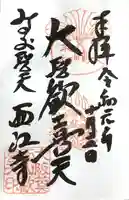 奉拝 令和元年十月二日
大聖歓喜天
みのお聖天 西江寺